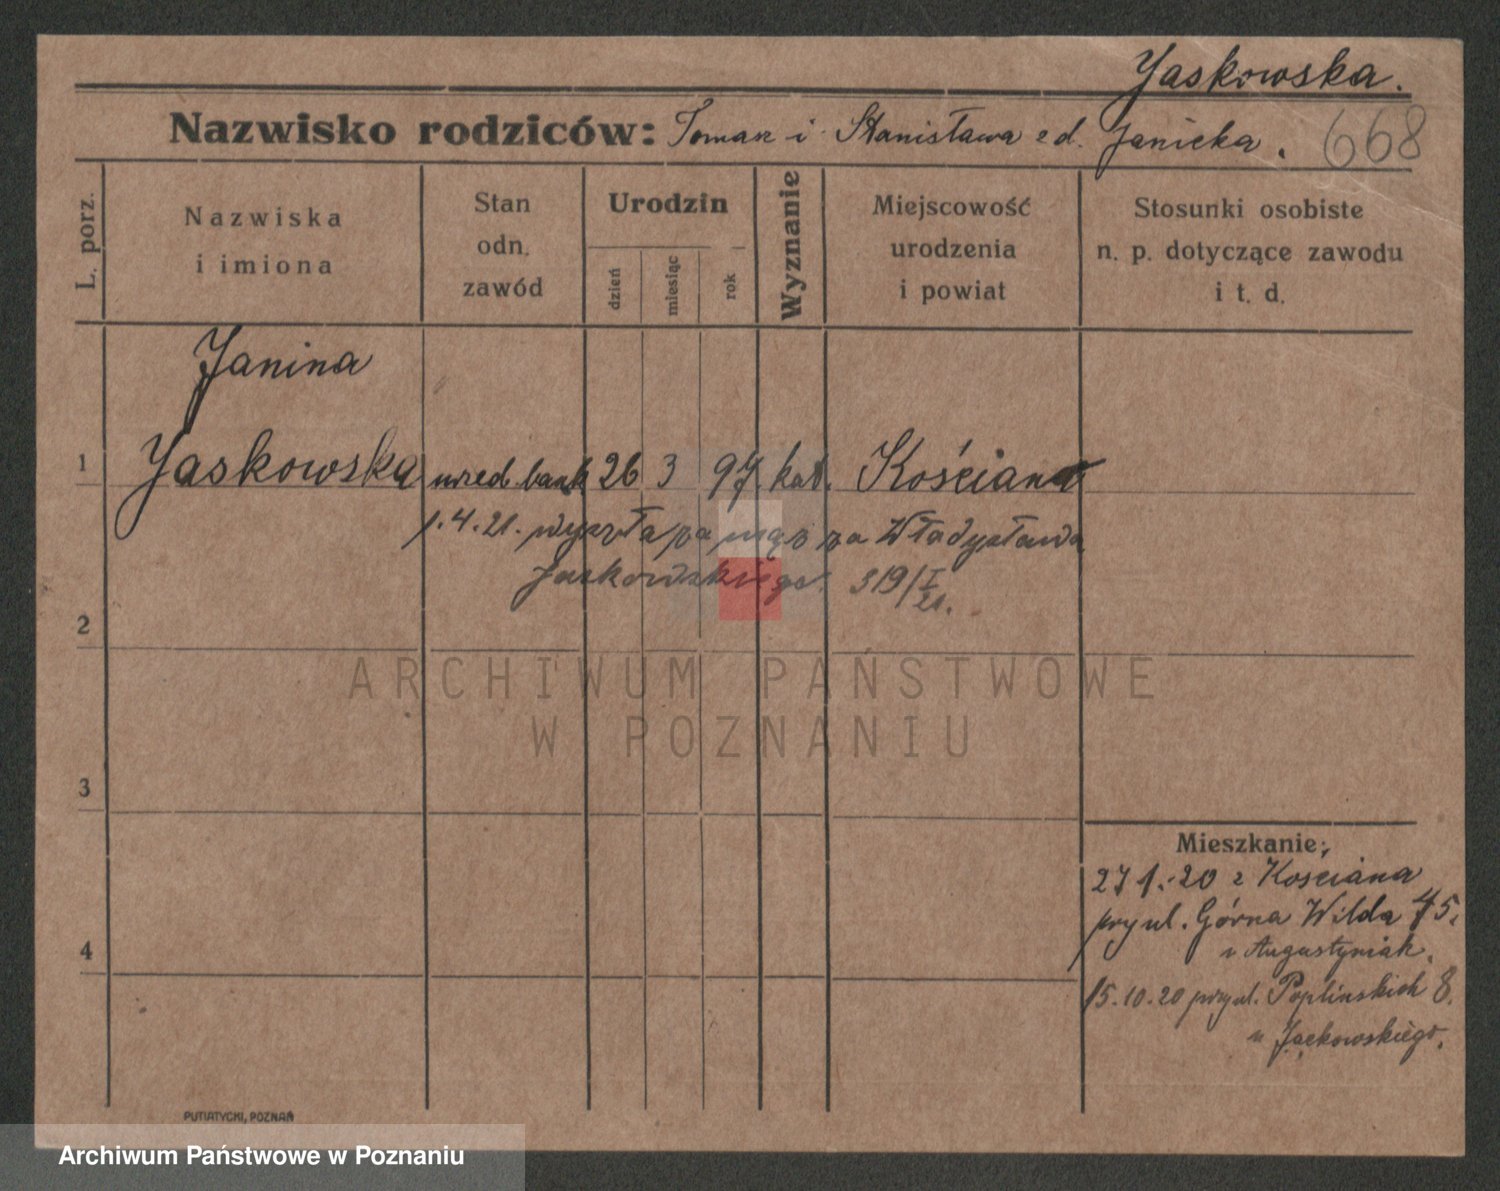 Jaskowska.
Nazwisko rodziców: Tomasz i Stanisława z d. Janicka.
668
L. porz.
Nazwiska
i imiona
Stan
odn.
zawód
Urodzin
dzień
miesiąc
rok
Wyznanie
Miejscowość
urodzenia
i powiat
Stosunki osobiste
n. p. dotyczące zawodu
i t. d.
Janina
1 Jaskowska urzed. bank 26 3 97. kat. Kościan
1.4.21. wyszła za mąż za Władysława
Jaskowskiego. 319/I 21.
2
ARCHIWUM PAŃSTWOWE
W POZNANIU
3
Mieszkanie:
27 1.-20 z Kościana
przy ul. Górna Wilda 75.
u Augustyniak.
4
15.10.20 przy ul. Poplińskich 8.
u Jackowskiego.
PUTIATYCKI, POZNAŃ
Archiwum Państwowe w Poznaniu